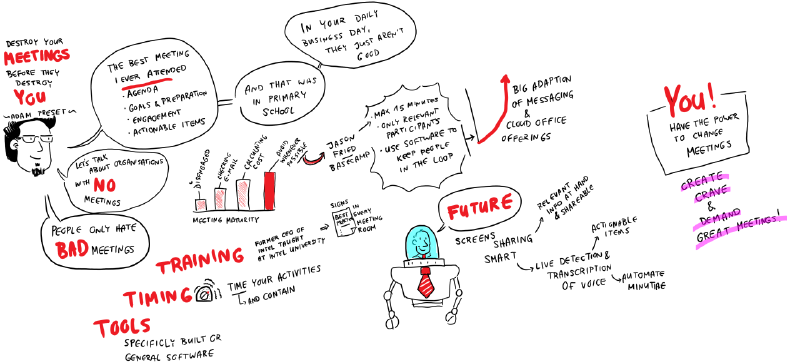 DESTROY YOUR
MEETINGS
BEFORE THEY
DESTROY
YOU
~ADAM PRESET~
THE BEST MEETING
I EVER ATTENDED
• AGENDA
• GOALS & PREPARATION
• ENGAGEMENT
• ACTIONABLE ITEMS
AND THAT WAS
IN PRIMARY
SCHOOL
IN YOUR DAILY
BUSINESS DAY,
THEY JUST AREN'T
GOOD
LET'S TALK
ABOUT ORGANISATIONS
WITH NO
MEETINGS
PEOPLE ONLY HATE
BAD MEETINGS
DISENGAGED
CHECKING
E-MAIL
CALCULATING
COST
AVOID
WHENEVER
POSSIBLE
MEETING MATURITY
JASON
FRIED
BASECAMP
• MAX 15 MINUTES
• ONLY RELEVANT
PARTICIPANTS
• USE SOFTWARE TO
KEEP PEOPLE
IN THE LOOP
BIG ADAPTION
OF MESSAGING
&
CLOUD OFFICE
OFFERINGS
YOU!
HAVE THE POWER
TO CHANGE
MEETINGS
CREATE
CRAVE
&
DEMAND
GREAT MEETINGS!
TRAINING
FORMER CEO OF
INTEL TAUGHT
AT INTEL UNIVERSITY
SIGNS
IN
EVERY
MEETING
ROOM
BEST
TIMING
TIME YOUR ACTIVITIES
AND CONTAIN
TOOLS
SPECIFICLY BUILT OR
GENERAL SOFTWARE
FUTURE
SCREENS
SHARING
SMART
RELEVANT
INFO AT HAND
& SHAREABLE
LIVE DETECTION &
TRANSCRIPTION
OF VOICE
ACTIONABLE
ITEMS
AUTOMATE
MINUTIAE